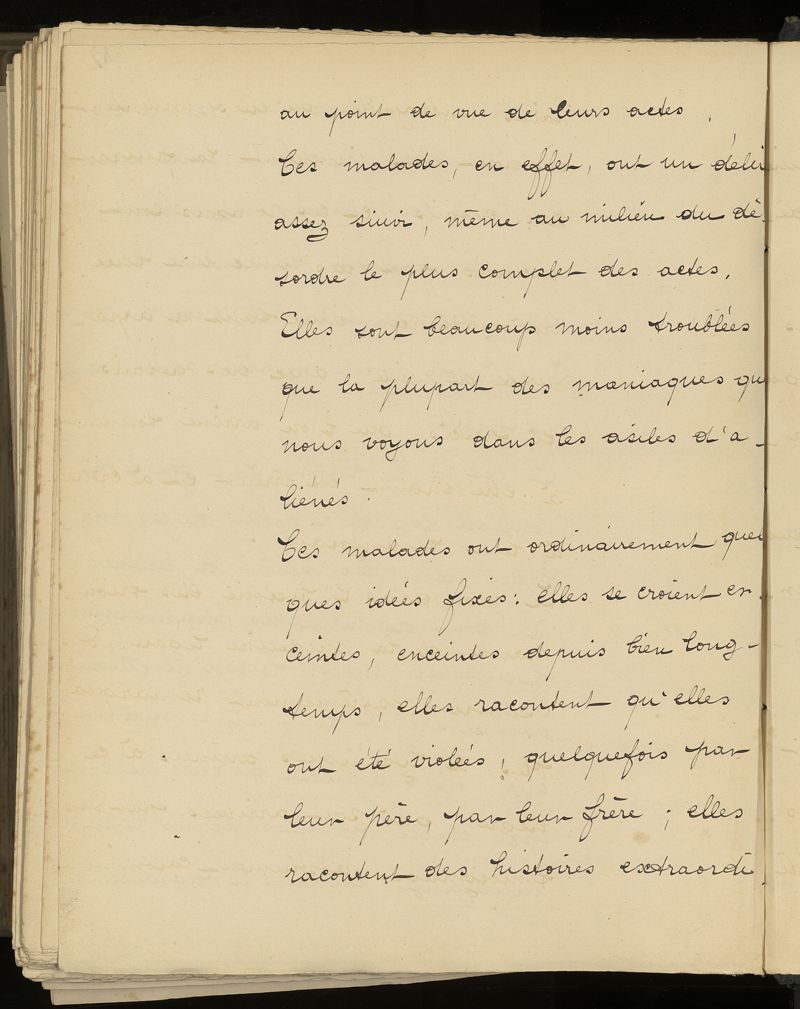 au point de vue de leurs actes.
Ces malades, en effet, ont un déli
assez suivi, même au milieu du dé-
sordre le plus complet des actes.
Elles sont beaucoup moins troublées
que la plupart des maniaques qu
nous voyons dans les asiles d'a-
liénés.
Ces malades ont ordinairement quel
ques idées fixes: elles se croient en-
ceintes, enceintes depuis bien long-
temps, elles racontent qu'elles
ont été violées, quelquefois par
leur père, par leur frère; elles
racontent des histoires extraordi